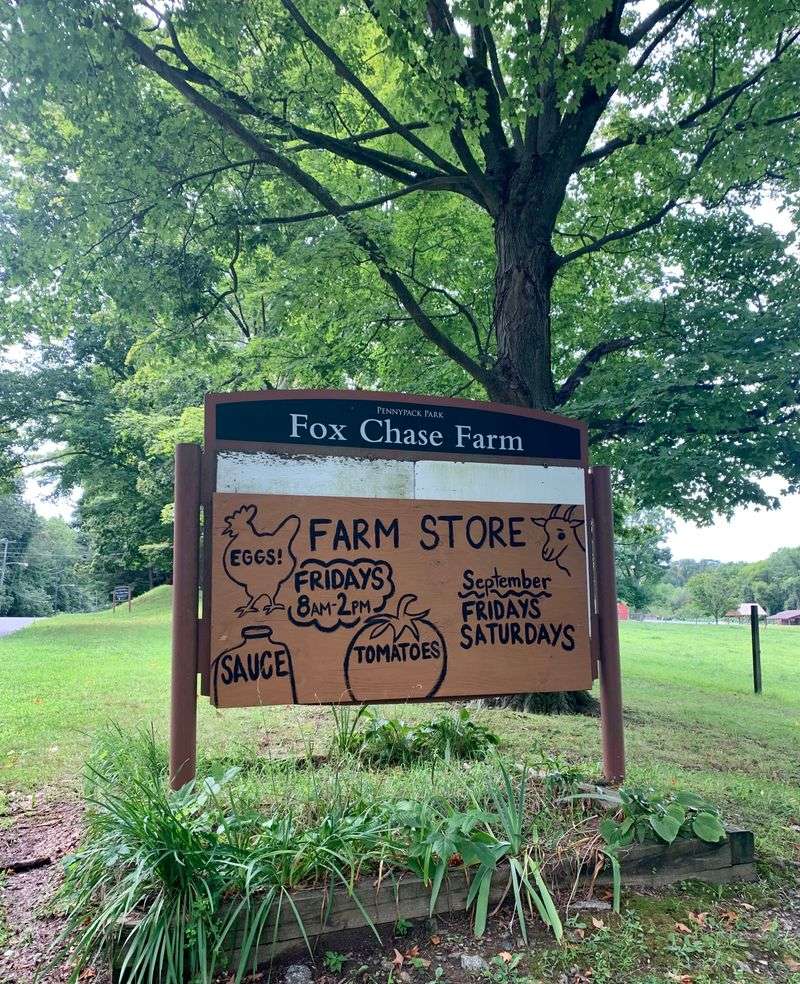 Pennypack Park
Fox Chase Farm
FARM STORE
EGGS!
FRIDAYS
8AM-2PM
September
FRIDAYS
SATURDAYS
SAUCE
TOMATOES